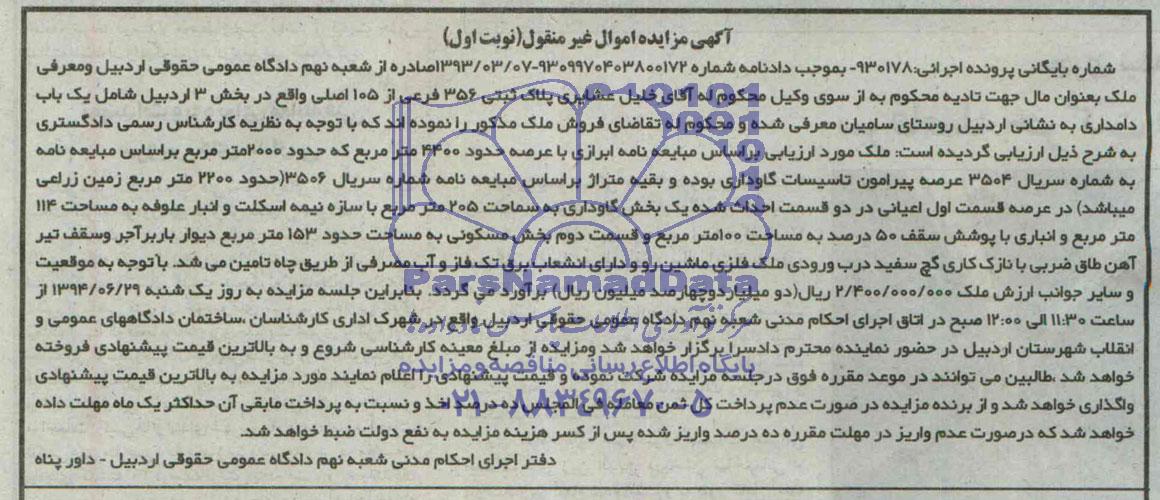 آگهی مزایده اموال غیر منقول(نوبت اول)
شماره بایگانی پرونده اجرائی:۹۳۰۱۷۸- بموجب دادنامه شماره ۹۳۰۹۹۷۰۴۰۳۸۰۰۱۷۲-۱۳۹۳/۰۳/۰۷صادره از شعبه نهم دادگاه عمومی حقوقی اردبیل ومعرفی
ملک بعنوان مال جهت تادیه محکوم به از سوی وکیل محکوم له آقای خلیل عشایری پلاک ثبتی ۳۵۶ فرعی از ۱۰۵ اصلی واقع در بخش ۳ اردبیل شامل یک باب
دامداری به نشانی اردبیل روستای سامیان معرفی شده و محکوم له تقاضای فروش ملک مذکور را نموده اند که با توجه به نظریه کارشناس رسمی دادگستری
به شرح ذیل ارزیابی گردیده است: ملک مورد ارزیابی براساس مبایعه نامه ابرازی با عرصه حدود ۴۴۰۰ متر مربع که حدود ۲۰۰۰متر مربع براساس مبایعه نامه
به شماره سریال ۳۵۰۴ عرصه پیرامون تاسیسات گاوداری بوده و بقیه متراژ براساس مبایعه نامه شماره سریال ۳۵۰۶(حدود ۲۲۰۰ متر مربع زمین زراعی
میباشد) در عرصه قسمت اول اعیانی در دو قسمت احداث شده یک بخش گاوداری به سماحت ۲۰۵ متر مربع با سازه نیمه اسکلت و انبار علوفه به مساحت ۱۱۴
متر مربع و انباری با پوشش سقف ۵۰ درصد به مساحت ۱۰۰متر مربع و قسمت دوم بخش مسکونی به مساحت حدود ۱۵۳ متر مربع دیوار باربرآجر وسقف تیر
آهن طاق ضربی با نازک کاری گچ سفید درب ورودی ملک فلزی ماشین رو و دارای انشعاب برق تک فاز و آب مصرفی از طریق چاه تامین می شد. با توجه به موقعیت
و سایر جوانب ارزش ملک ۲/۴۰۰/۰۰۰/۰۰۰ ریال(دو میلیاردوچهارصد میلیون ریال) برآورد می گردد. بنابراین جلسه مزایده به روز یک شنبه ۱۳۹۴/۰۶/۲۹ از
ساعت ۱۱:۳۰ الی ۱۲:۰۰ صبح در اتاق اجرای احکام مدنی شعبه نهم دادگاه عمومی حقوقی اردبیل واقع در شهرک اداری کارشناسان ،ساختمان دادگاههای عمومی و
انقلاب شهرستان اردبیل در حضور نماینده محترم دادسرا برگزار خواهد شد ومزایده از مبلغ معینه کارشناسی شروع و به بالاترین قیمت پیشنهادی فروخته
خواهد شد ،طالبین می توانند در موعد مقرره فوق درجلسه مزایده شرکت نموده و قیمت پیشنهادی را اعلام نمایند مورد مزایده به بالاترین قیمت پیشنهادی
واگذاری خواهد شد و از برنده مزایده در صورت عدم پرداخت کل ثمن معامله فی المجلس ده درصد اخذ و نسبت به پرداخت مابقی آن حداکثر یک ماه مهلت داده
خواهد شد که درصورت عدم واریز در مهلت مقرره ده درصد واریز شده پس از کسر هزینه مزایده به نفع دولت ضبط خواهد شد.
دفتر اجرای احکام مدنی شعبه نهم دادگاه عمومی حقوقی اردبیل - داور پناه
ParsNamadData
پایگاه اطلاع رسانی مناقصه و مزایده
۰۲۱-۸۸۳۴۹۶۷۰-۵